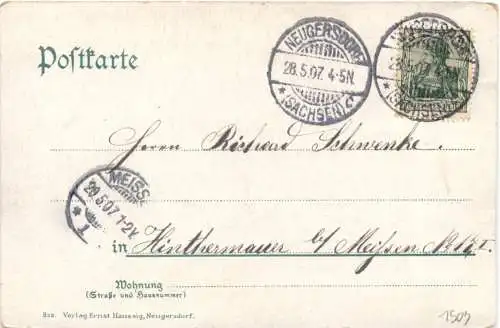 Postkarte
NEUGERSDORF
28.5.07. 4-5N.
* (SACHSEN) c *
NEUGERSDORF
28.5
* (SACHSEN)
Herrn Richard Schwenke
MEISS
29.5.07. 1-2V.
* 1
in Hinthermauer b/ Meißen
Wohnung
(Straße und Hausnummer)
Verlag Ernst Hauswig, Neugersdorf.
1504